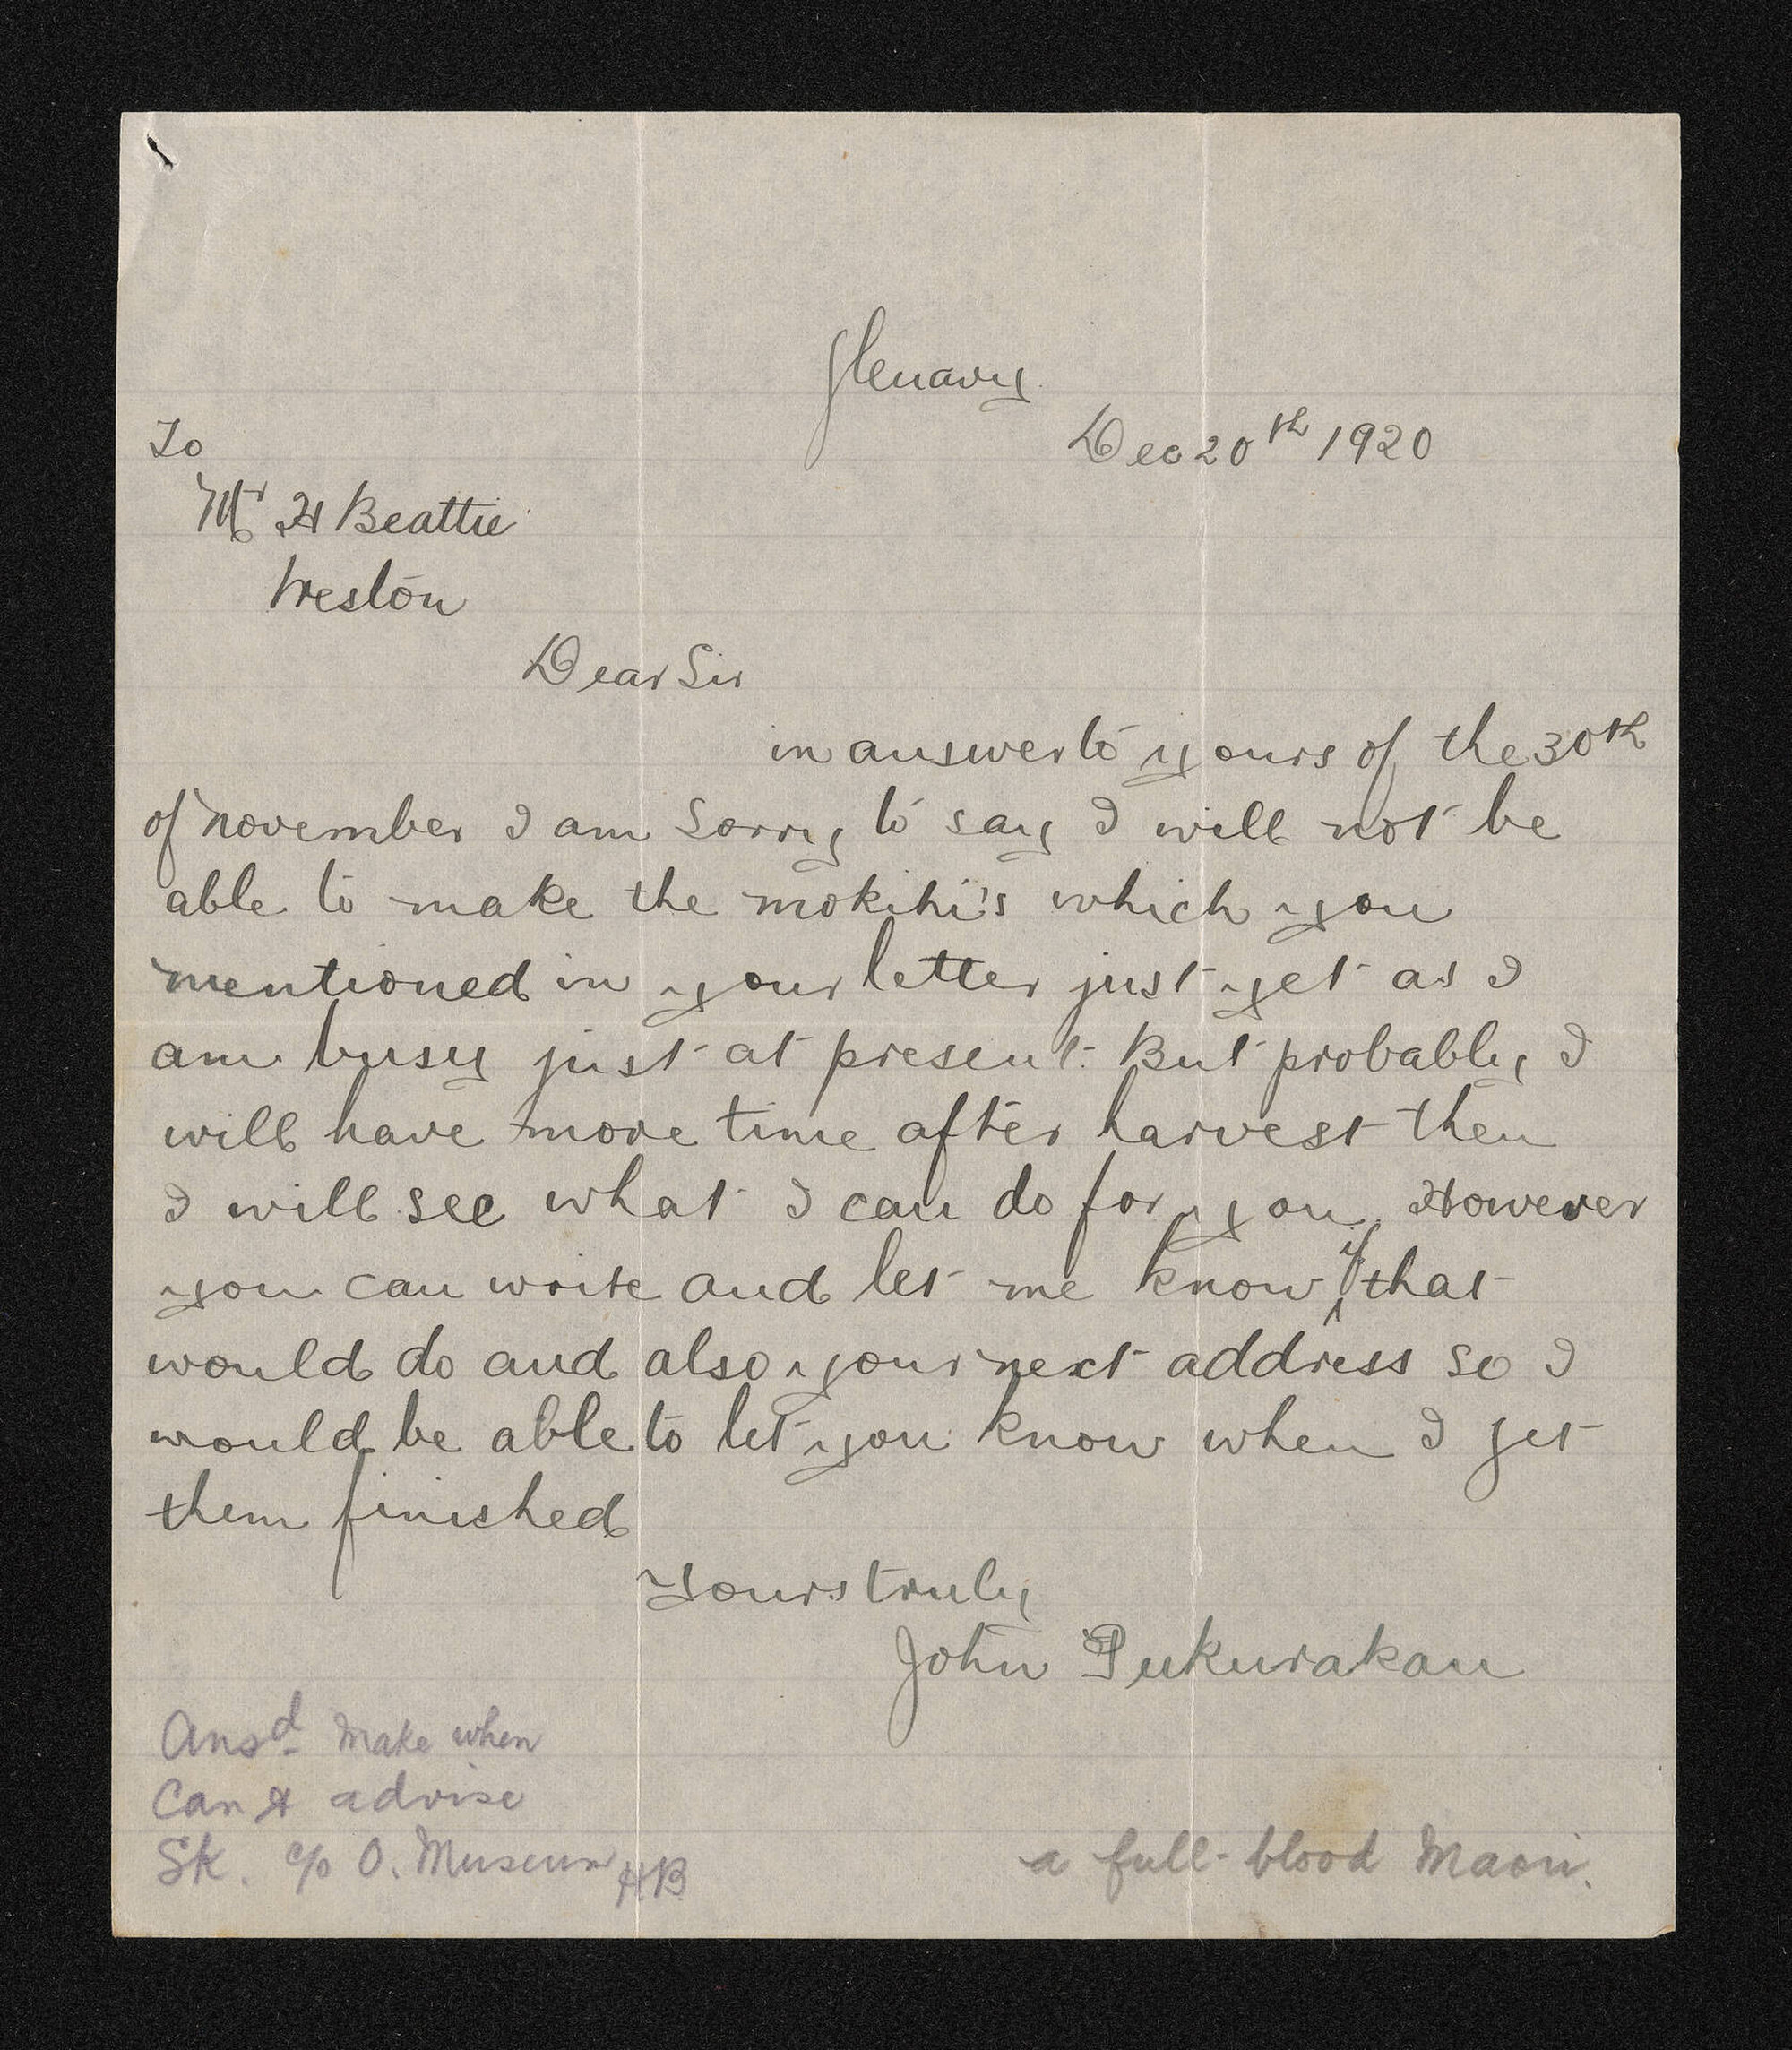 Glenavy
Dec 20th 1920
To
Mr H Beattie
Weston
Dear Sir
in answer to yours of the 30th
of november I am sorry to say I will not be
able to make the mokihi's which you
mentioned in your letter just yet as I
am busy just at present. But probably I
will have more time after harvest then
I will see what I can do for you. However
you can write and let me know if that
would do and also your next address so I
would be able to let you know when I get
them finished
Yours truly
John Pukurakau
Ansd Make when
Can & advise
Sk. c/o O. Museum HB
a full-blood Maori.